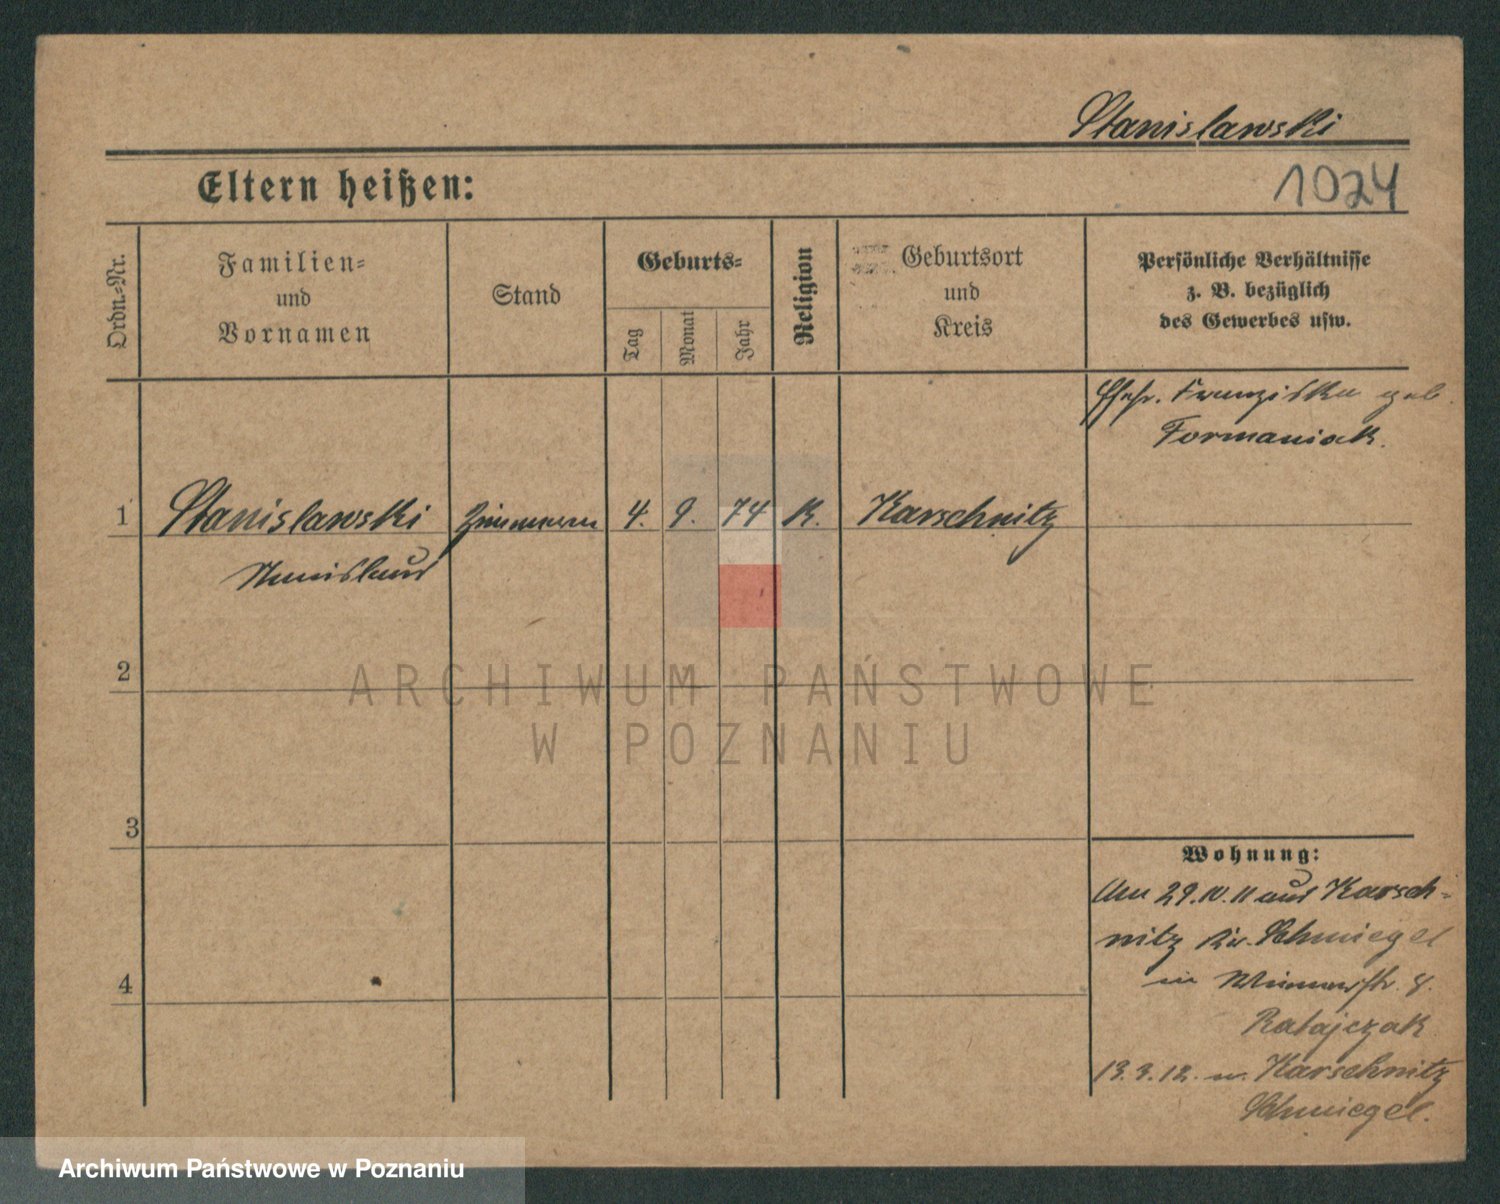 Stanislawski
Eltern heißen:
1024
Ordn.-Nr.
Familien-
und
Vornamen
Stand
Geburts-
Tag
Monat
Jahr
Religion
Geburtsort
und
Kreis
Persönliche Verhältnisse
z. B. bezüglich
des Gewerbes usw.
Ehefr. Franziska geb.
Formaniak.
1 Stanislawski 4. 9. 74 K. Karschnitz
Stanislaus
2
ARCHIWUM PAŃSTWOWE
W POZNANIU
3
Wohnung:
29.IV.11 aus Karsch-
nitz Kr. Schmiegel
in 8.
Ratajczak
13.3.12. n. Karschnitz
Schmiegel.
4
Archiwum Państwowe w Poznaniu